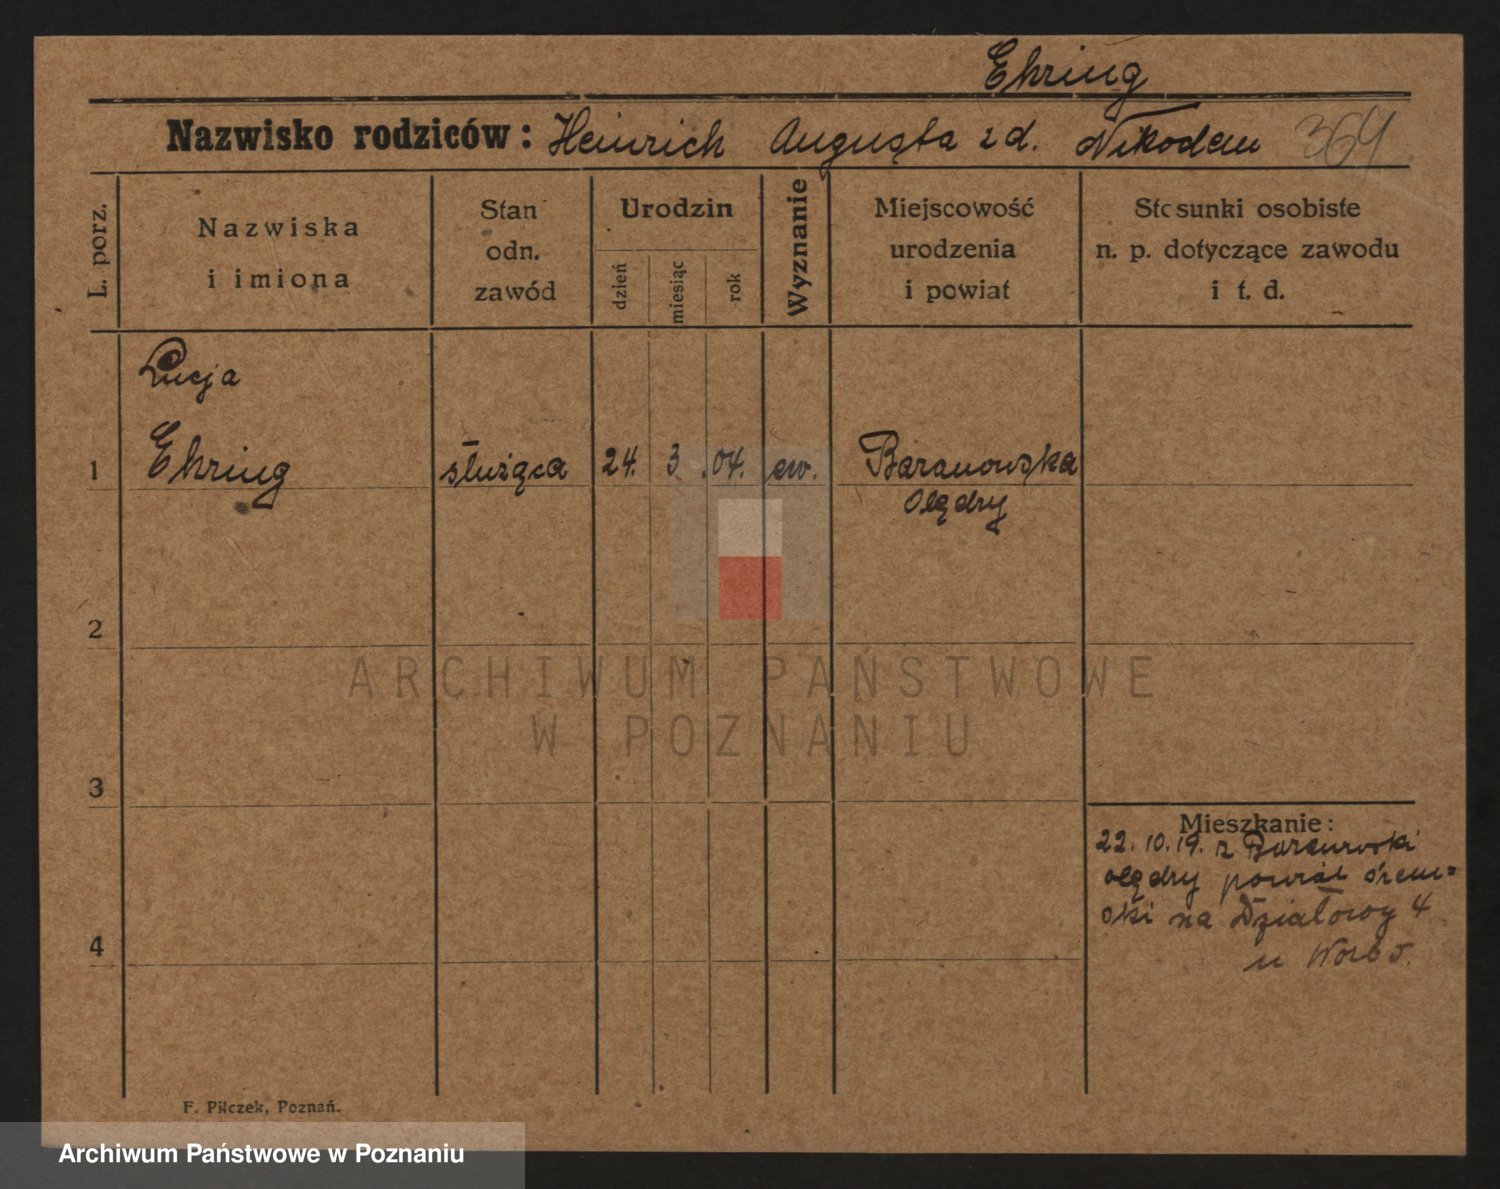 Ehring
Nazwisko rodziców: Heinrich Augusta z d. Nikodem 364
L. porz.
Nazwiska
i imiona
Stan
odn.
zawód
Urodzin
dzień
miesiąc
rok
Wyznanie
Miejscowość
urodzenia
i powiat
Stosunki osobiste
n. p. dotyczące zawodu
i t. d.
Lucja
1 Ehring służąca 24. 3 .04. ew. Baranowska
Olędry
2
3
4
Mieszkanie:
22. 10. 19. z Baranowski
olędry powiat śrem=
ski na Działowy 4
u
F. Pilczek, Poznań.
ARCHIWUM PAŃSTWOWE
W POZNANIU
Archiwum Państwowe w Poznaniu